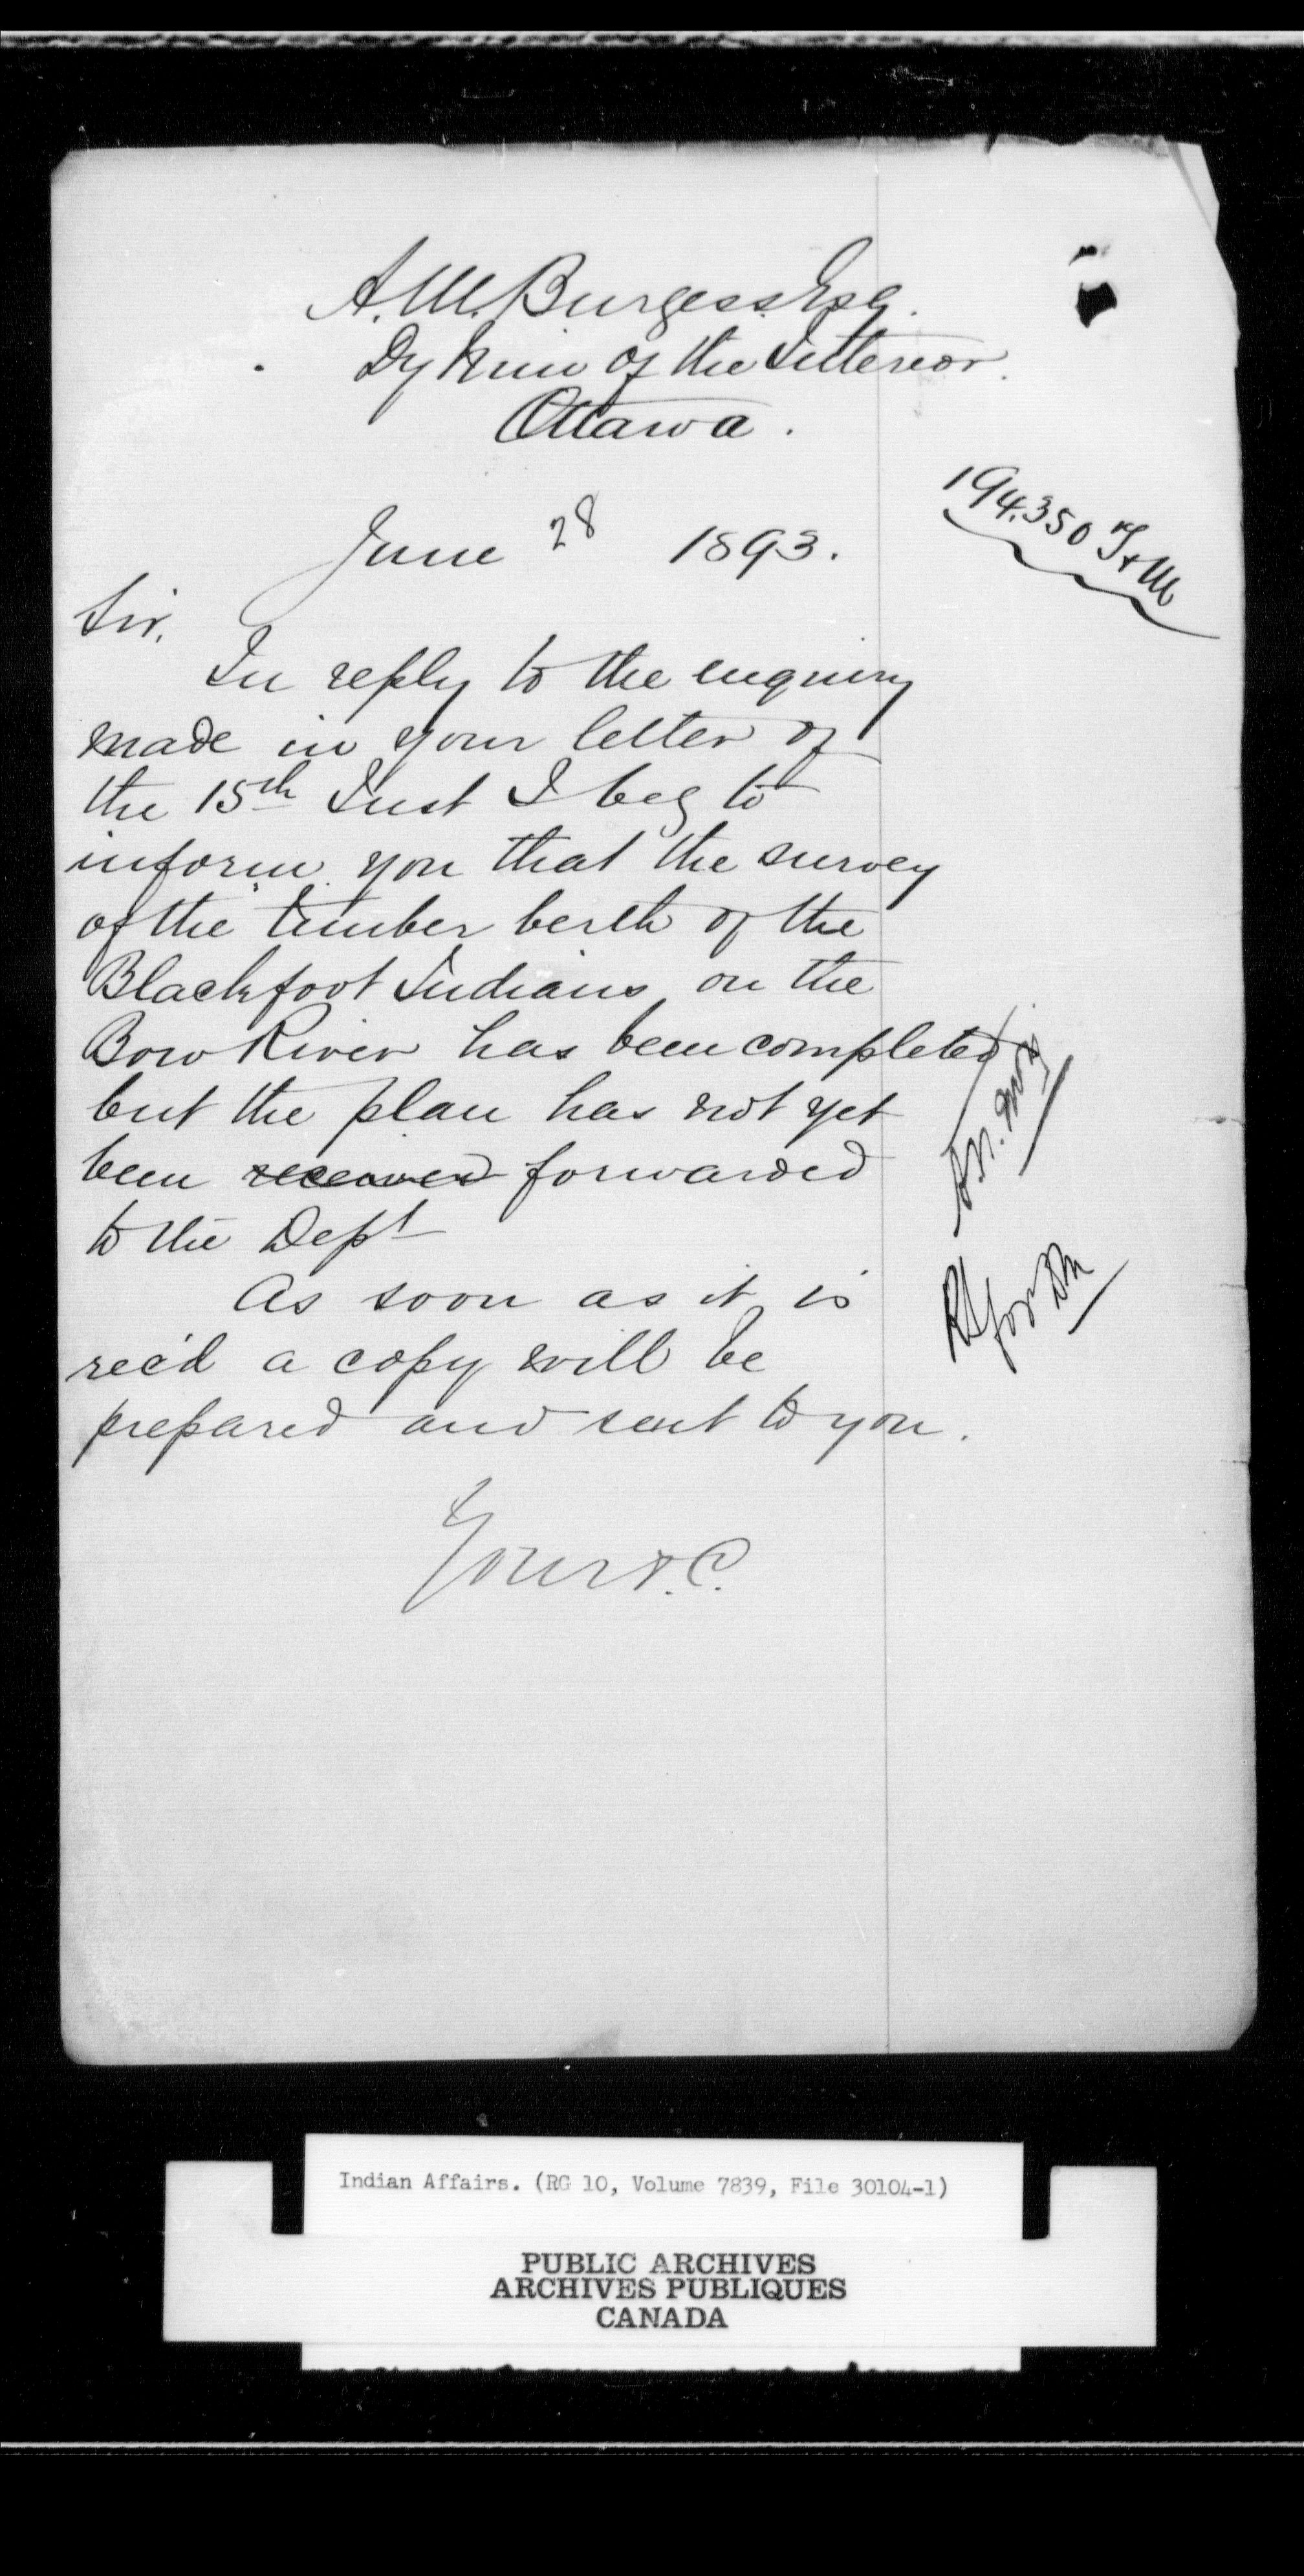 A. M. Burgess Esq.
Dy Min of the Interior.
Ottawa.
194.350 T & M
June 28 1893.
Sir,
In reply to the enquiry
made in your letter of
the 15th Inst I beg to
inform you that the survey
of the timber berth of the
Blackfoot Indians on the
Bow River has been completed
but the plan has not yet
been received forwarded
to the Dept
As soon as it is
rec'd a copy will be
prepared and sent to you.
for DM
Yours &.C.
Indian Affairs. (RG 10, Volume 7839, File 30104-1)
PUBLIC ARCHIVES
ARCHIVES PUBLIQUES
CANADA